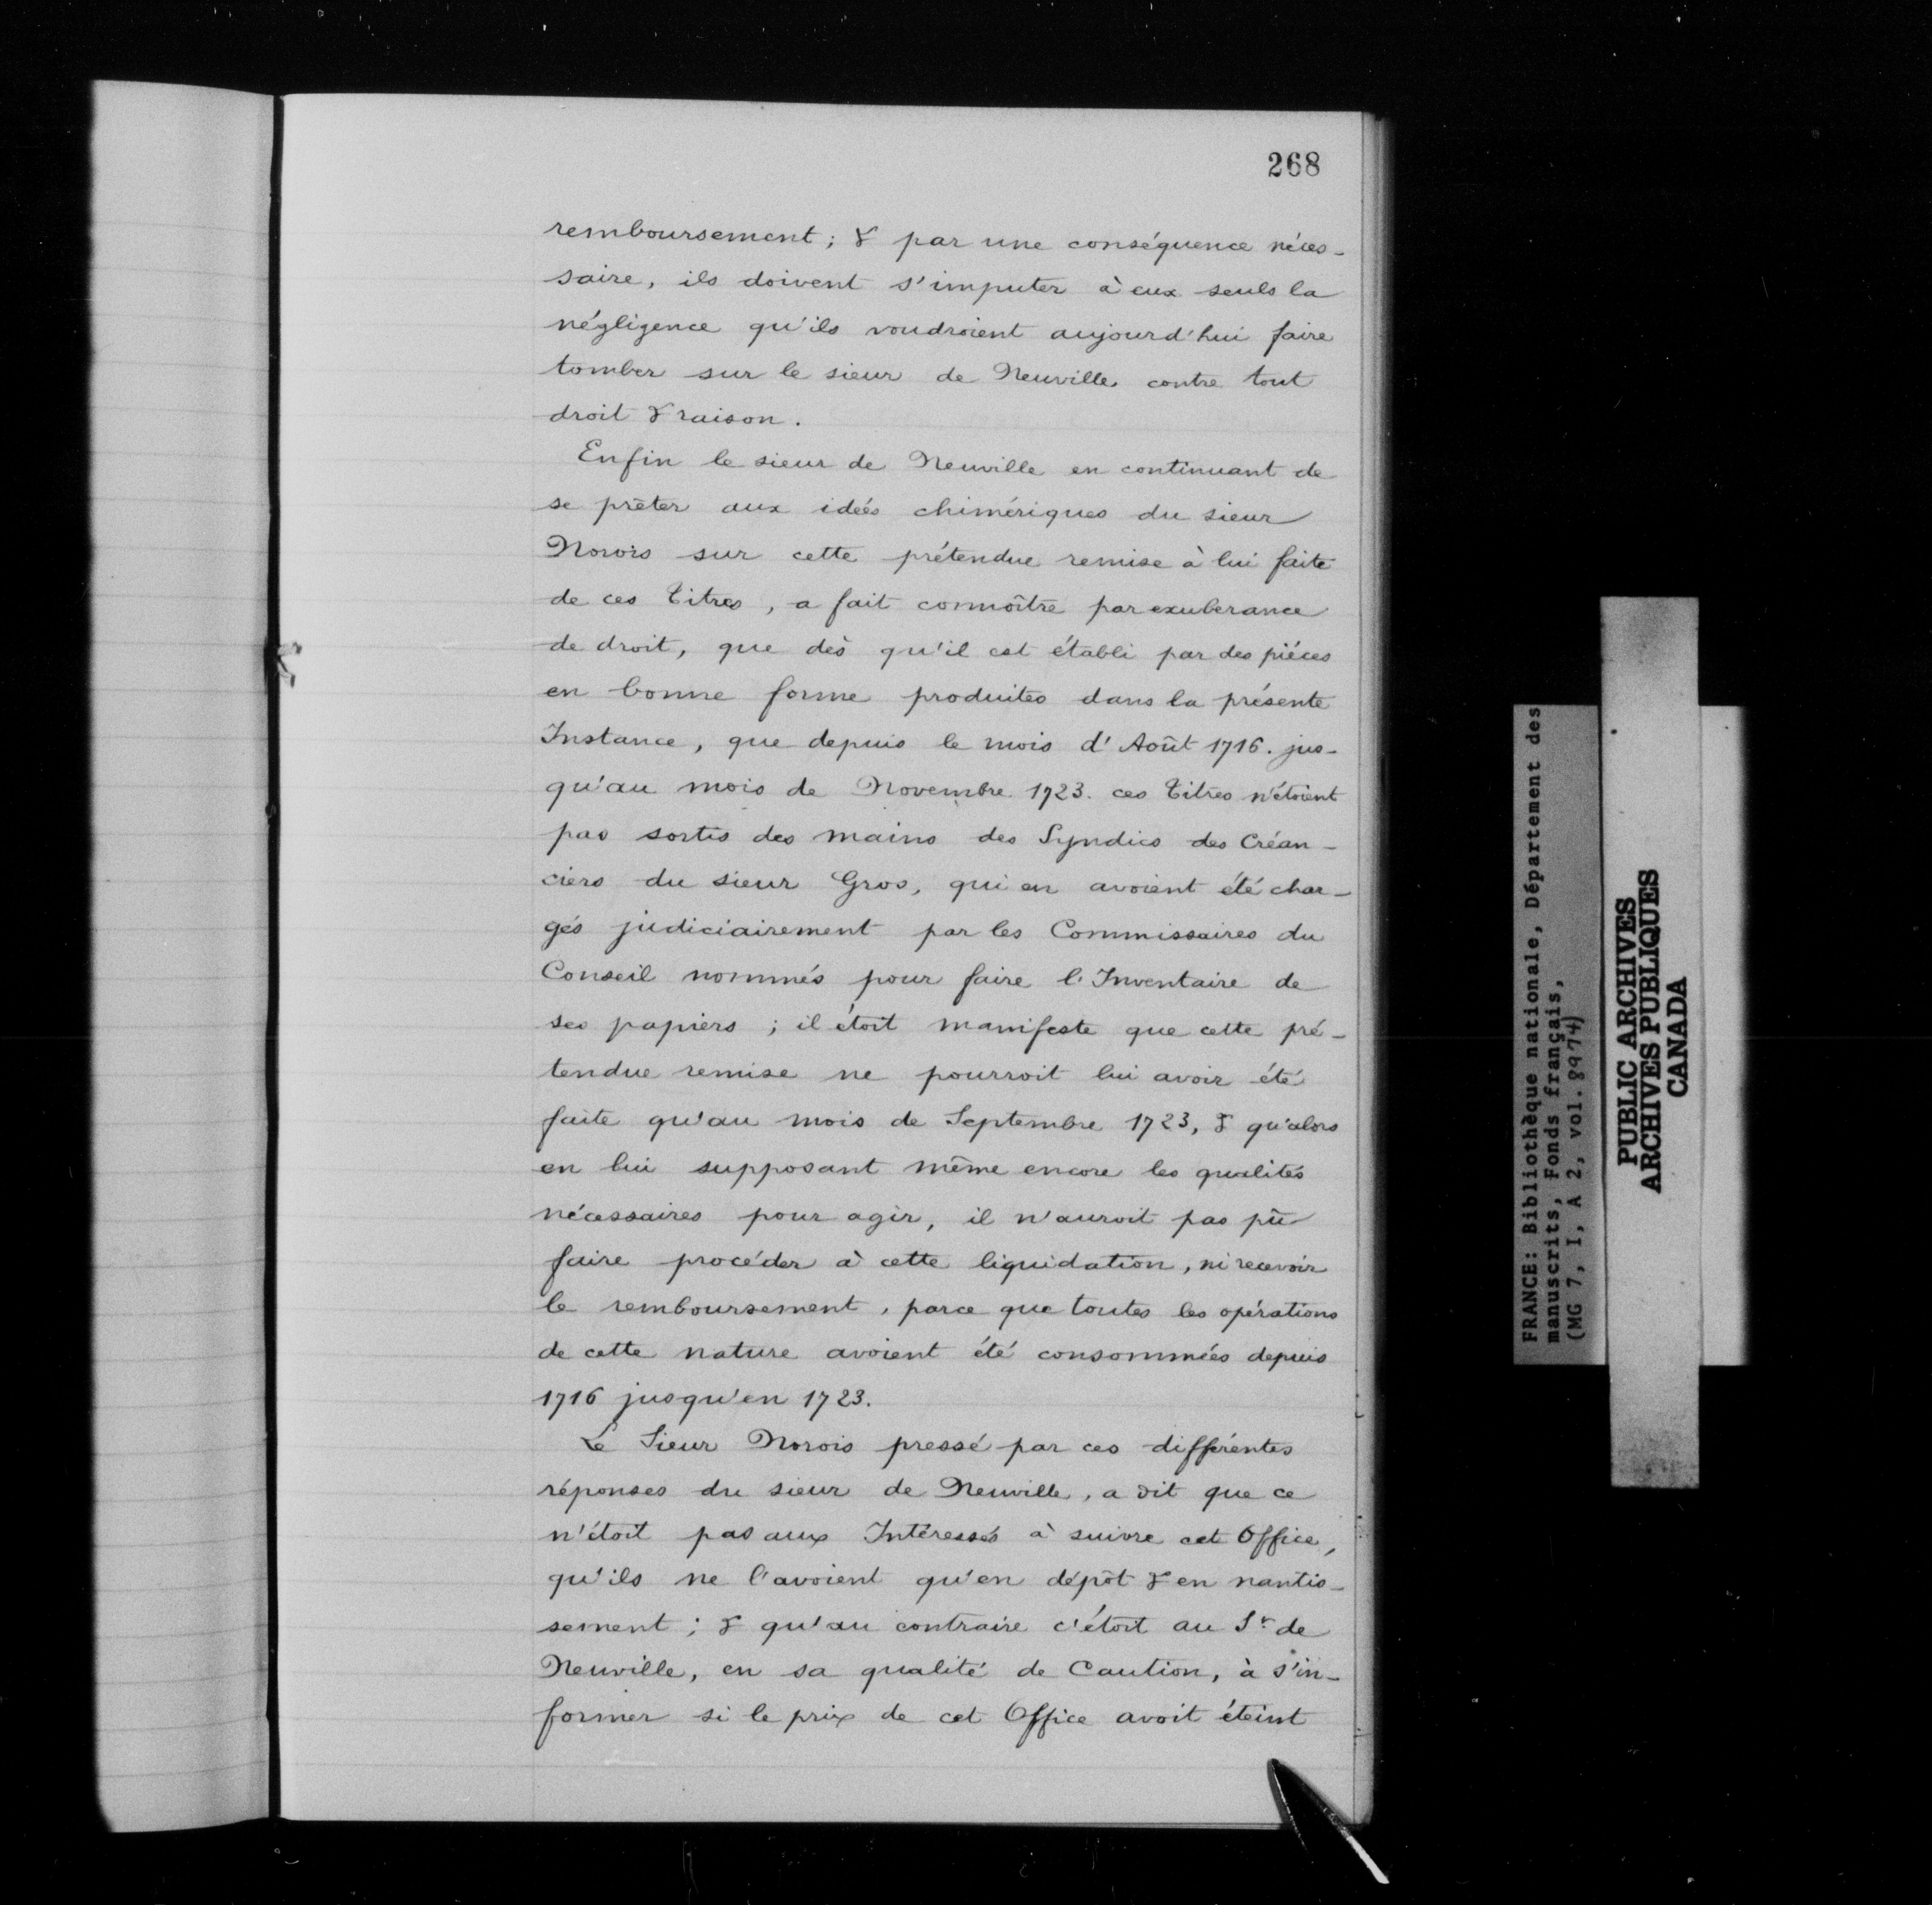 268
remboursement ; & par une conséquence néces-
saire, ils doivent s'imputer à eux seuls la
négligence qu'ils voudroient aujourd'hui faire
tomber sur le sieur de Neuville contre tout
droit & raison.
Enfin le sieur de Neuville en continuant de
se prêter aux idées chimériques du sieur
Norois sur cette prétendue remise à lui faite
de ces Titres, a fait connoître par exuberance
de droit, que dès qu'il est établi par des piéces
en bonne forme produites dans la présente
Instance, que depuis le mois d'Août 1716. jus-
qu'au mois de Novembre 1723. ces Titres n'étoient
pas sortis des mains des Syndics des Créan-
ciers du sieur Gros, qui en avoient été char-
gés judiciairement par les Commissaires du
Conseil nommés pour faire l'Inventaire de
ses papiers ; il étoit manifeste que cette pré-
tendue remise ne pourroit lui avoir été
faite qu'au mois de Septembre 1723, & qu'alors
en lui supposant même encore les qualités
nécessaires pour agir, il n'auroit pas pû
faire procéder à cette liquidation, ni recevoir
le remboursement, parce que toutes les opérations
de cette nature avoient été consommées depuis
1716 jusqu'en 1723.
Le Sieur Norois pressé par ces différentes
réponses du sieur de Neuville, a dit que ce
n'étoit pas aux Intéressés à suivre cet Office,
qu'ils ne l'avoient qu'en dépôt & en nantis-
sement ; & qu'au contraire c'étoit au Sr de
Neuville, en sa qualité de Caution, à s'in-
former si le prix de cet Office avoit éteint
FRANCE: Bibliothèque nationale, Département des
manuscrits, Fonds français,
(MG 7, I, A 2, vol. 8974)
PUBLIC ARCHIVES
ARCHIVES PUBLIQUES
CANADA